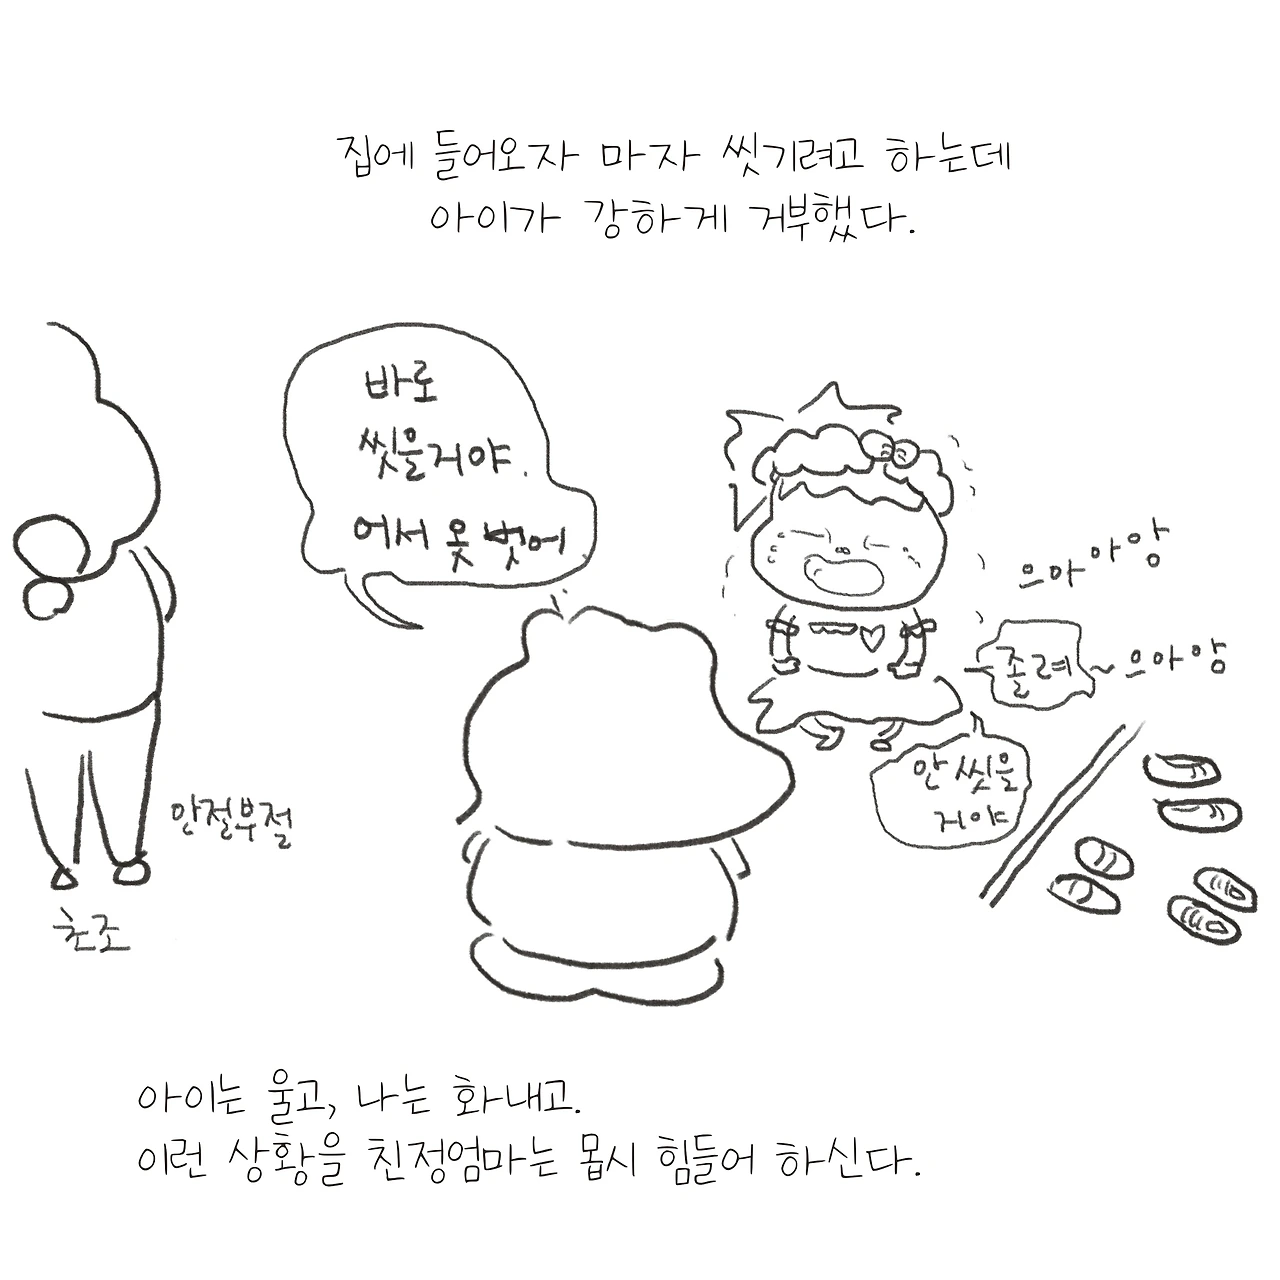 집에 들어오자 마자 씻기려고 하는데
아이가 강하게 거부했다.
바로
씻을거야.
어서 옷 벗어
으아아앙
졸려~으아앙
안 씻을
거야
안절부절
초조
아이는 울고, 나는 화내고.
이런 상황을 친정엄마는 몹시 힘들어 하신다.